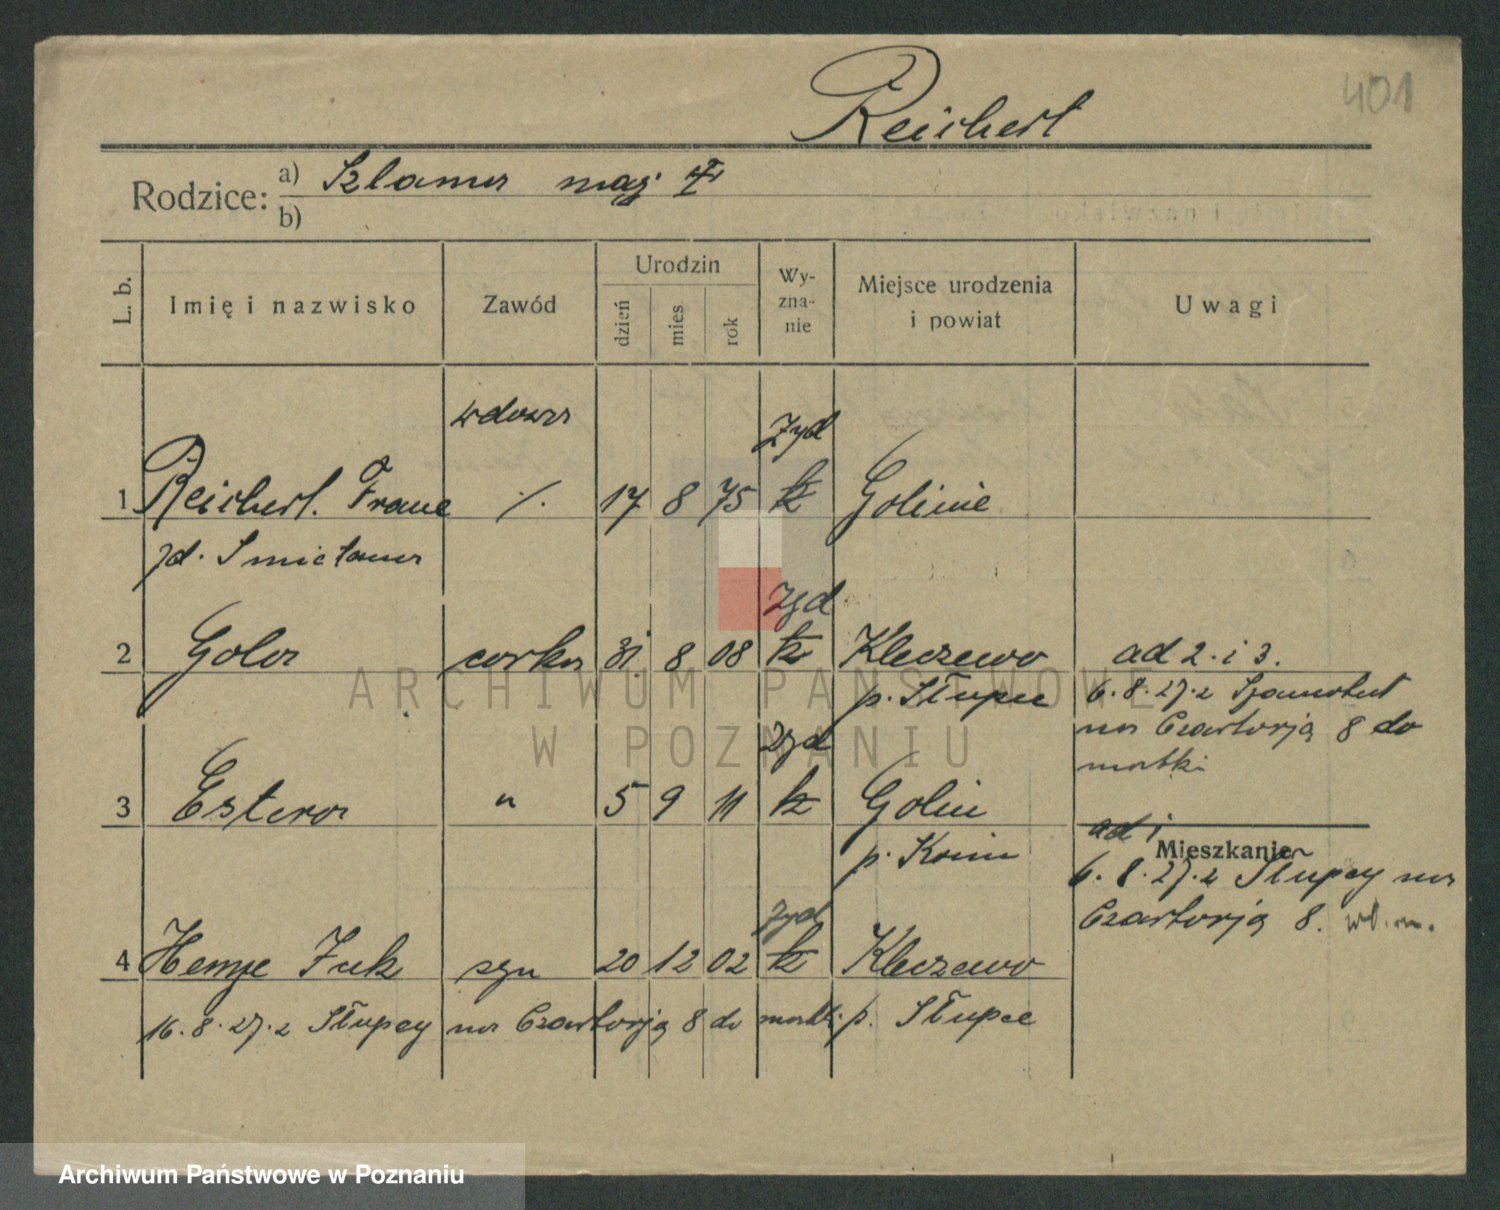 401
Reichert
Rodzice: a) Szlama mąż
b)
L. b.
Imię i nazwisko
Zawód
Urodzin
dzień
mies
rok
Wy-
zna-
nie
Miejsce urodzenia
i powiat
Uwagi
wdowa żyd
1 Reichert Frane /. 17 8 75 k Golinie
żd. Śmietana
żyd
2 Gola corka 31 8 08 k Kleczewo ad 2. i 3.
p. Słupce 6.8.27. z Szamotuł
na Czartorją 8 do
matki
żyd
3 Estera " 5 9 11 k Golin
p. Konin
ad 1
Mieszkanie
6.8.27. z Słupcy na
Czartorją 8. wł. m.
żyd
4 syn 20 12 02 k Kleczewo
16.8.27. z Słupcy na Czartorją 8 do matki p. Słupce
ARCHIWUM PAŃSTWOWE
W POZNANIU
Archiwum Państwowe w Poznaniu